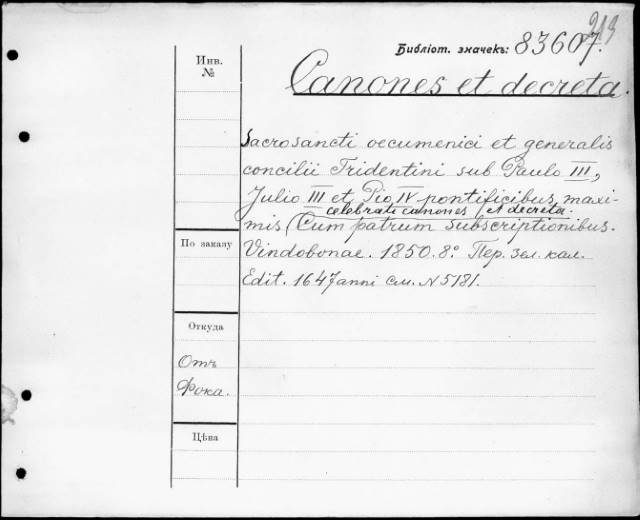 213
Библіот. значекъ: 83607.
Инв.
№
Canones et decreta.
Sacrosancti oecumenici et generalis
concilii Tridentini sub Paulo III,
Julio III et Pio IV pontificibus maxi-
celebrati canones et decreta.
mis (Cum patrum subscriptionibus.
Vindobonae. 1850. 8º. Пер. зел. кал.
Edit. 1647 anni см. N 5181.
По заказу
Откуда
Отъ
Фока.
Цѣна